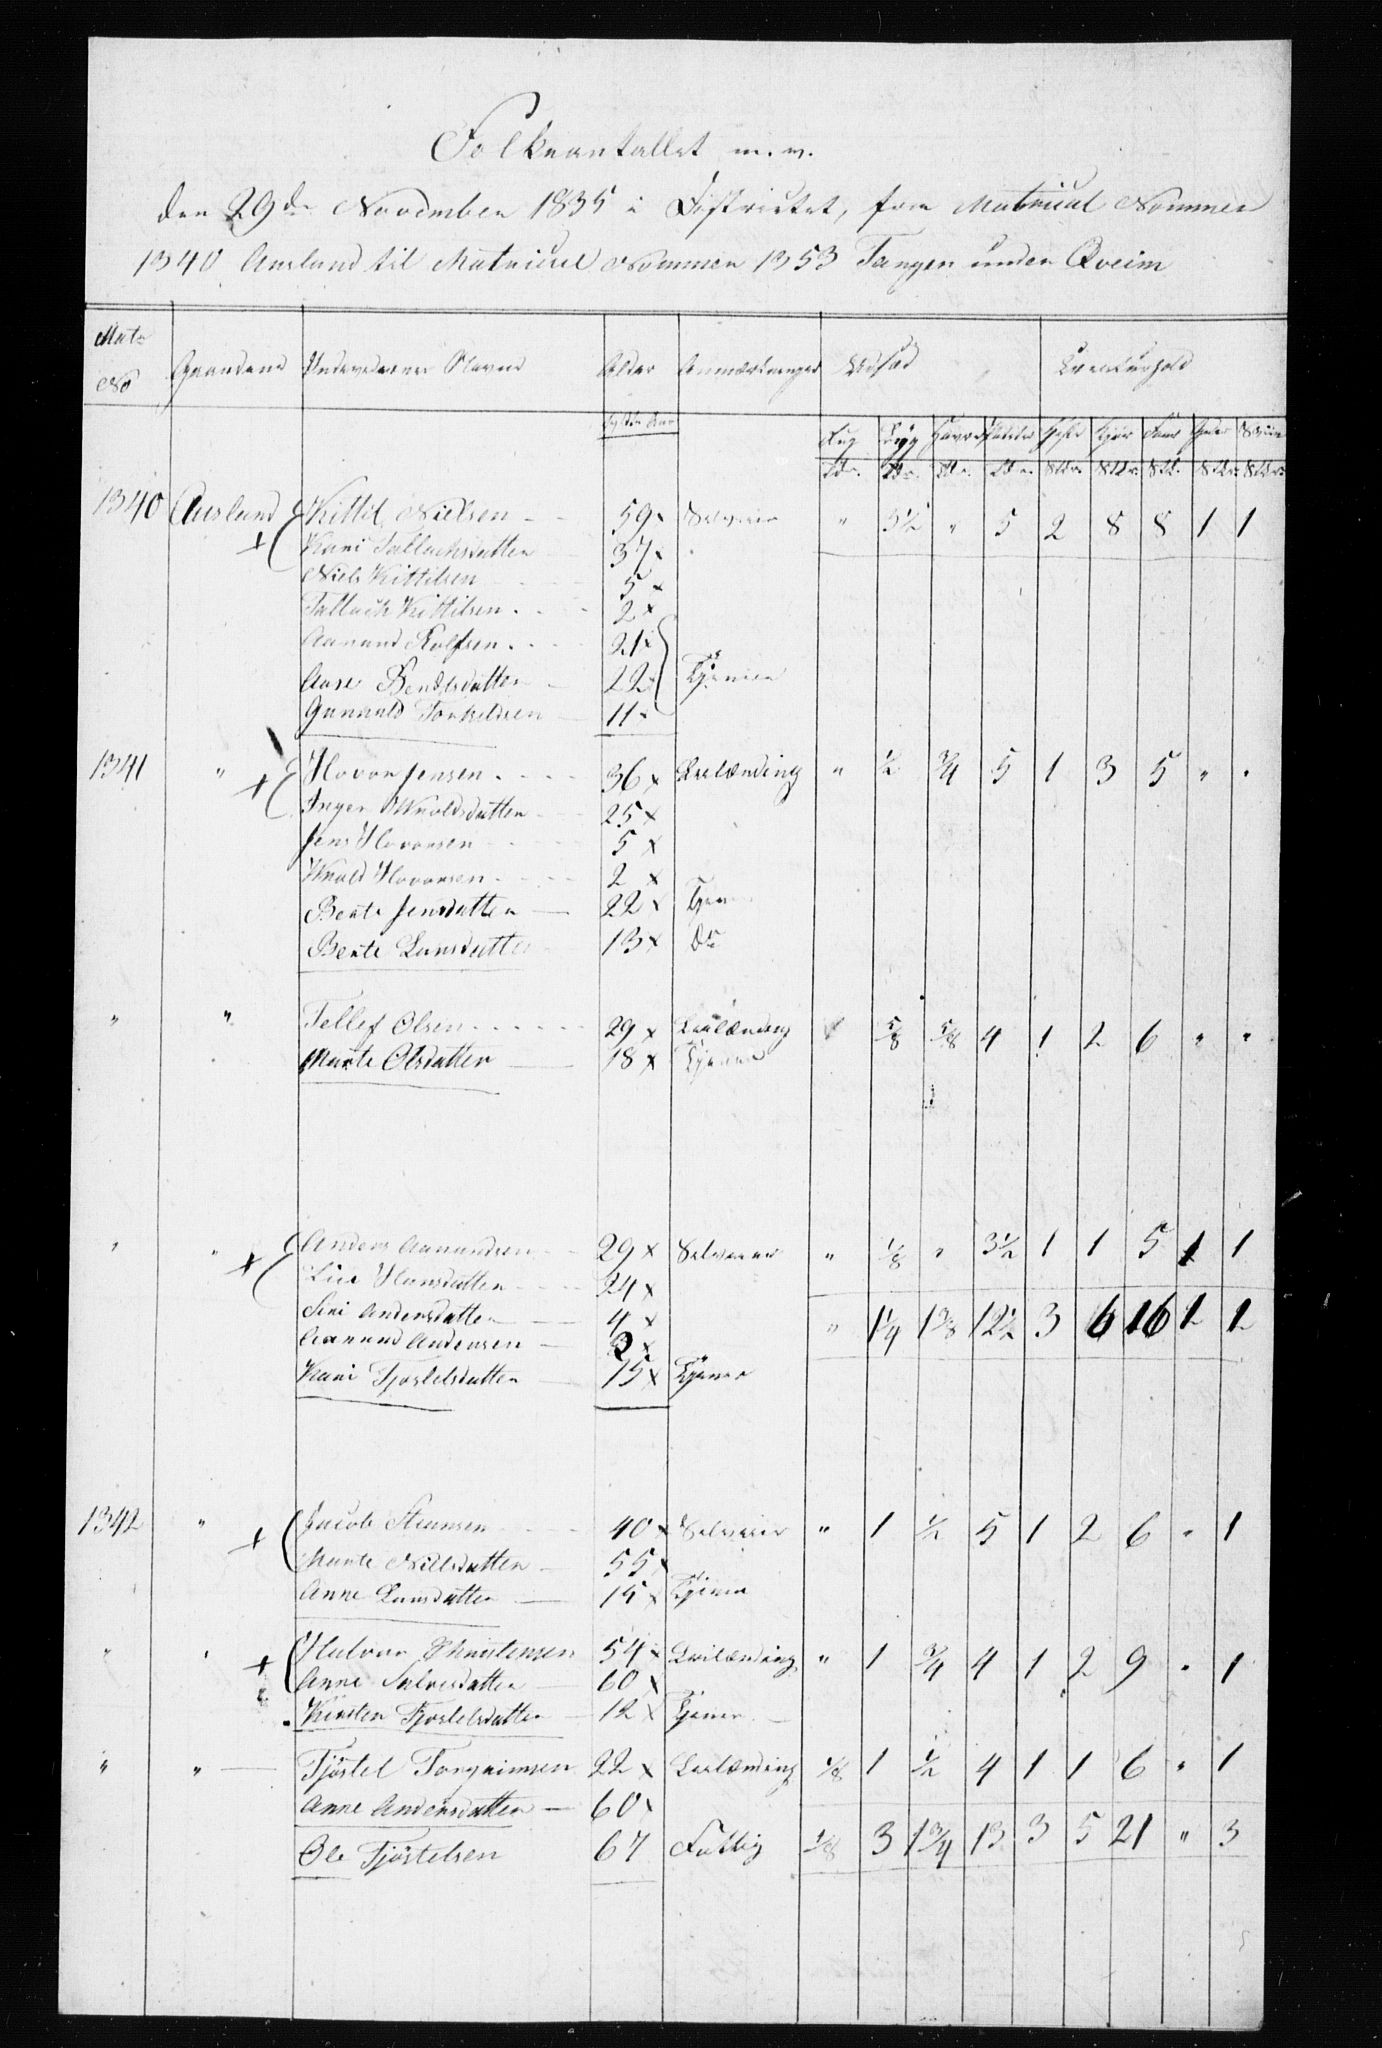 Folkeantallet m.v.
den 29de November 1835 i Districtet, fra Matricul Nommer
1340 Ausland til Matricul Nommer 1353 Tangen under Qveim
Mats No Gaardene Indvaanernes Navne Alder Anmærkninger Udsæd Creaturhold
fyldte Aar Rug Byg Havre Heste Kjør Faar Sviin
1340 Ausland Kittil Nielsen 59 Selveier " 5½ " 5 2 8 8 1 1
Kari Tallachsdatter 37
Niels Kittilsen 5
Tallach Kittilsen 2
Aanund Rolfsen 21
Aase Bendtsdatter 22 Tjenere
Gunnuld Torkildsen 11
1341 " Hovor Jensen 36 Leilænding " ½ ¾ 5 1 3 5 " "
Inger Knoldsdatter 25
Jens Hovorsen 5
Knold Hovorsen 2
Berte Jensdatter 22
Berte Larsdatter 13 do
" " Tellef Olsen 29 Leilænding ⅝ ⅝ 4 1 2 6 " "
Marte Olsdatter 18 Tjener
" " Anders Aanundsen 29 Selveier " ⅛ " 3½ 1 1 5 1 1
Lise Hansdatter 24
Siri Andersdatter 4
" 1¼ 1⅜ 12½ 3 6 16 1 1
Aanund Andersen
Kari Tjostelsdatter 15 Tjener
1342 " Jacob Steansen 40 Selveier " 1 ½ 5 1 2 6 " 1
Marte Nielsdatter 55
Anne Larsdatter 15 Tjener
" " Halvor Christensen 54 Leilænding " 1 ¾ 4 1 2 9 " 1
Anne Salvesdatter 60
Kirsten Tjostelsdatter 12 Tjener
" " Tjöstel Torgrimsen 22 Leilænding ⅛ 1 ½ 4 1 1 6 " 1
Anne Andersdatter 60
Ole Tjöstelsen 67 Fattig ⅛ 3 1¾ 13 3 5 21 " 3